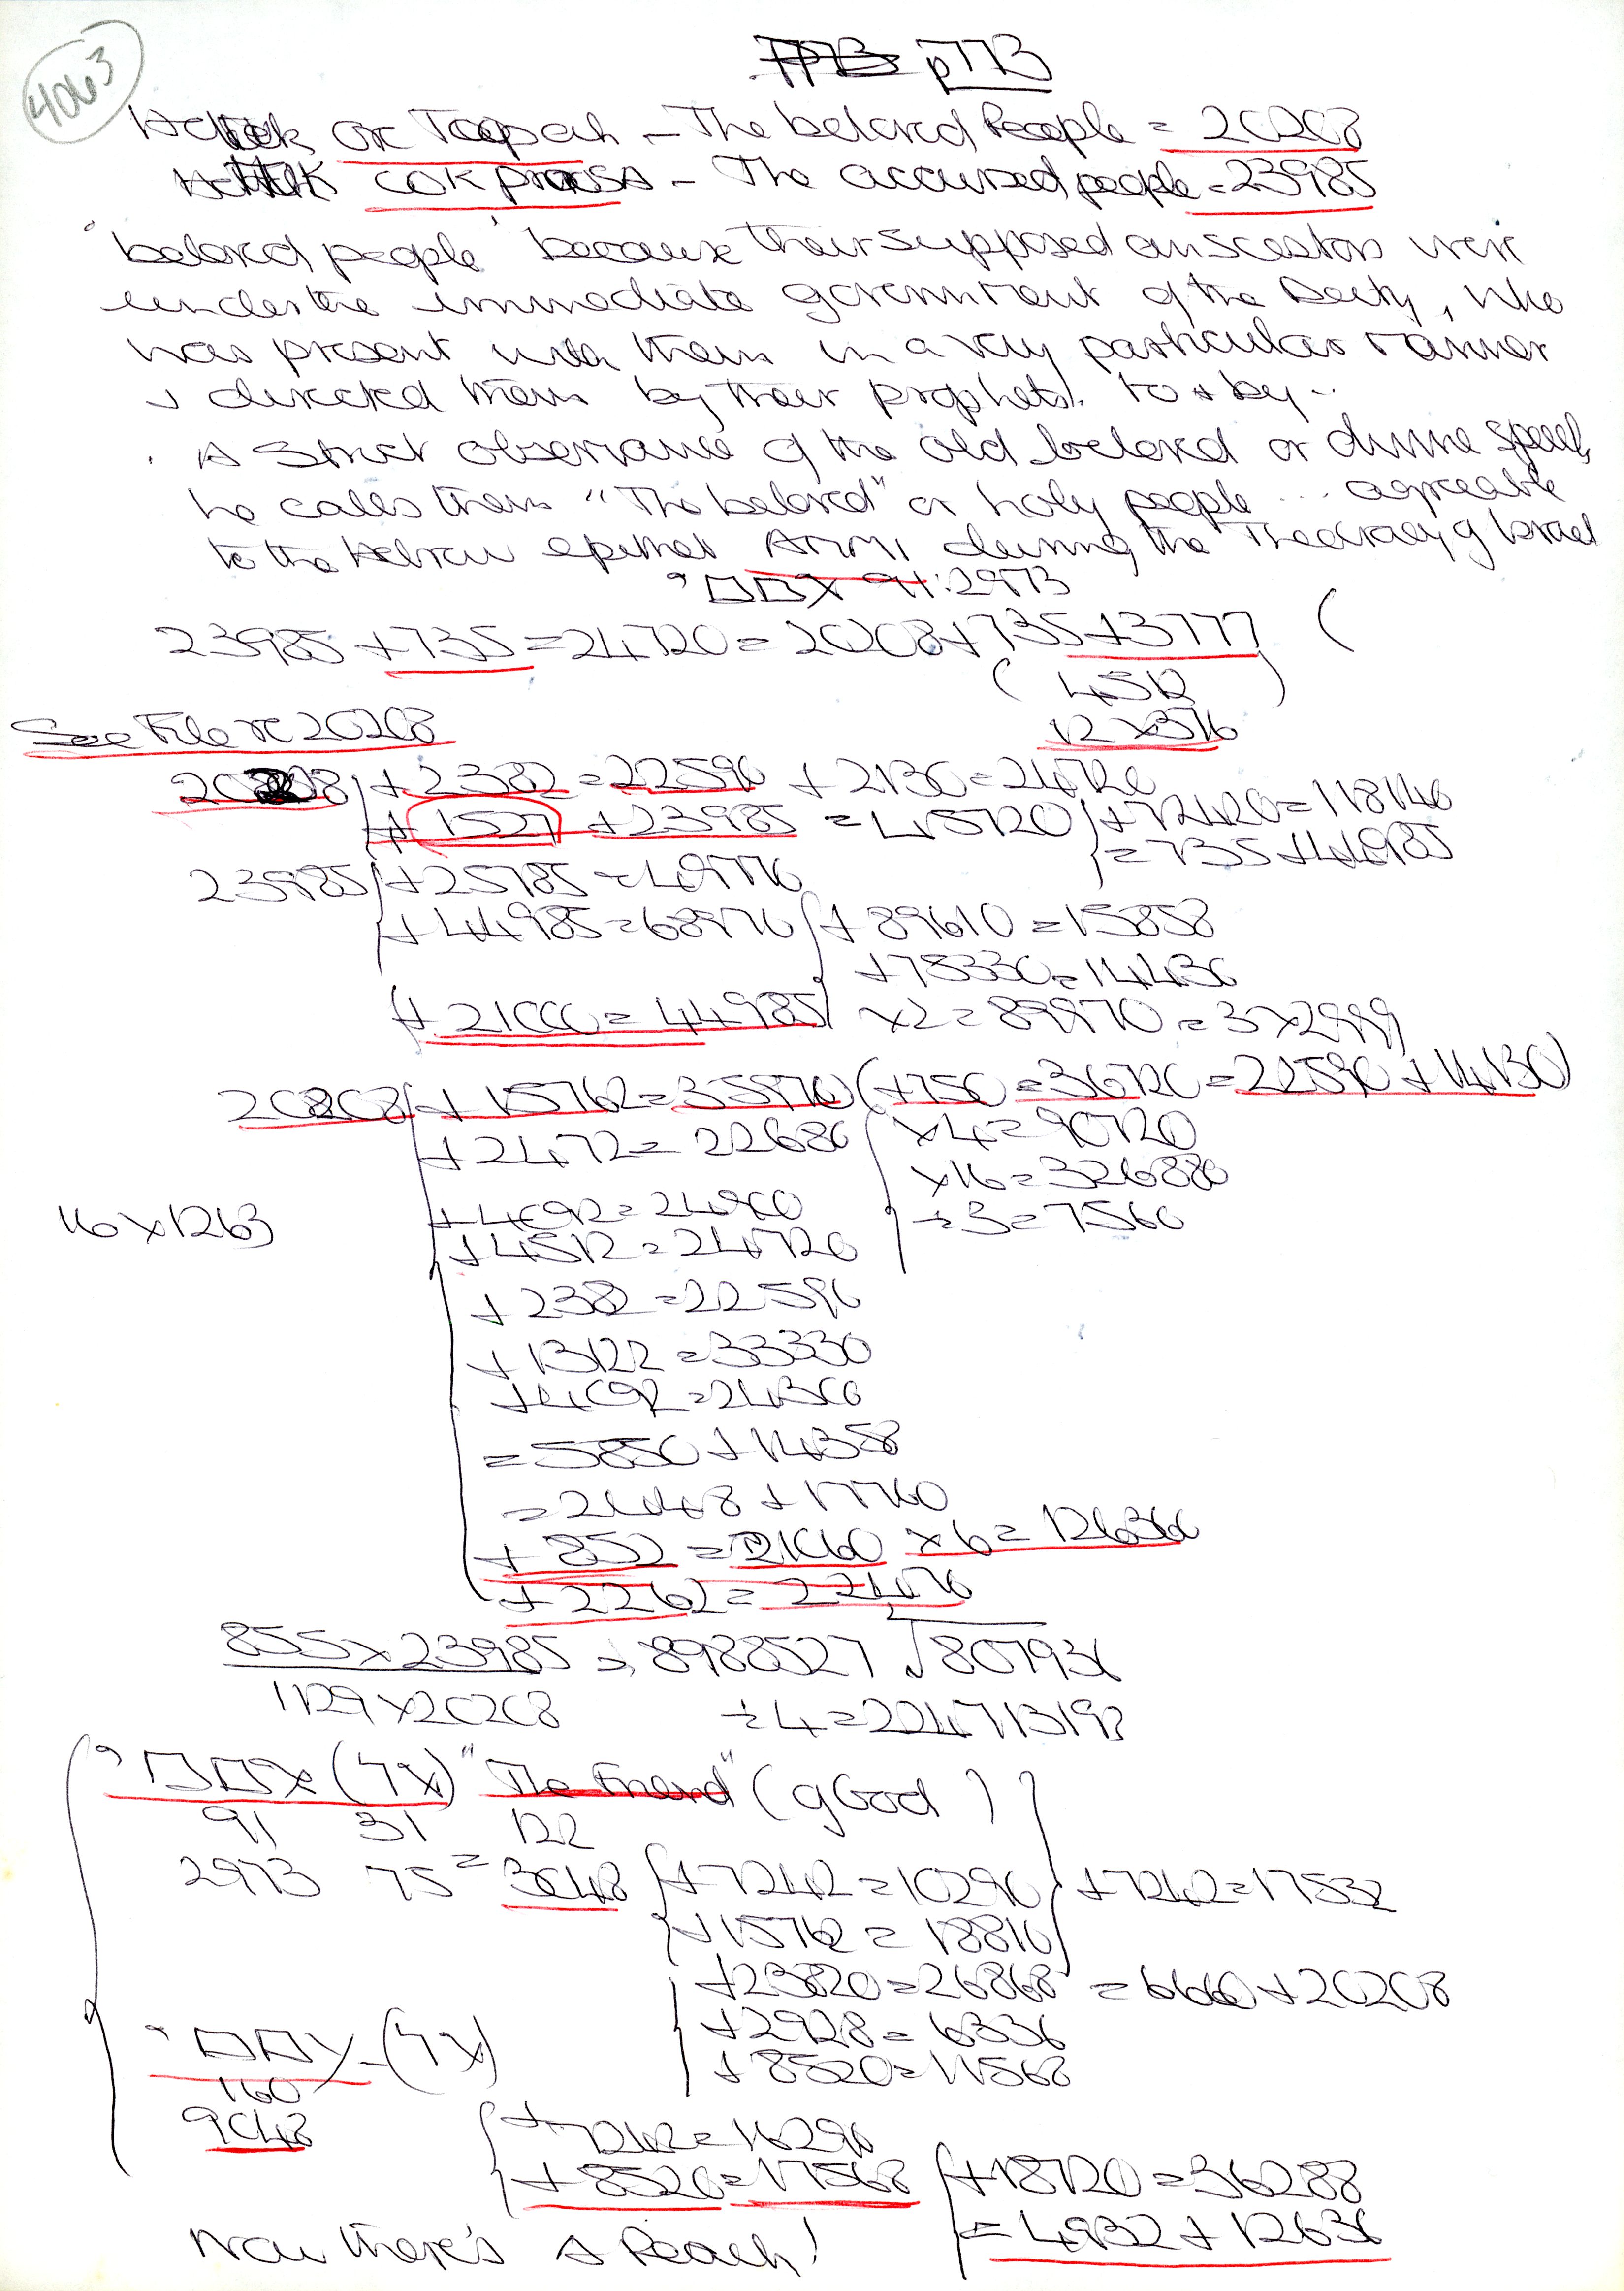 4063
p773
Hottuk ore Toopah - The beloved People = 20208
Hottuk ook proose - The accursed people = 23985
'beloved people' because their supposed anscestors were
under the immediate government of the Deity, who
was present with them in a very particular manner
& directed them by their prophets. to & by..
A Strict observance of the old beloved or divine speech,
he calls them "The beloved" or holy people ... agreeable
to the Hebrew epithet Ammi during the Theocracy of Israel
91:2973
23985 + 735 = 24720 = 20208 + 735 + 3777 (
( 4512 )
12 x 376
See File re 20208
20208 + 2382 = 22590 + 2130 = 24720
+ 1527 + 23985 = 45720 + 72420 = 118140
= 735 + 44985
23985 + 25785 = 49770
+ 44985 = 68970 + 89610 = 15858
+ 75330 = 14430
+ 21000 = 44985 x2 = 89970 = 3 x 2999
20208 + 15762 = 35970 (+750 = 36720 = 22590 + 14130)
+ 2472 = 22680 x4 = 90720
x16 = 326880
16 x 1263
+ 4692 = 24900
÷ 3 = 7560
+ 4512 = 24720
+ 2382 = 22590
+ 13122 = 33330
+ 4092 = 24300
= 5850 + 14358
= 2448 + 17760
+ 852 = 21060 x 6 = 126360
+ 2262 = 22470
855 x 23985 = 8988527 √807936
1129 x 20208 ÷ 4 = 224713193
"The Friend" (of God)
91 31 122
2973 75 = 3048 + 7242 = 10290 + 7242 = 17532
+ 15762 = 18810
+ 23820 = 26868 = 6660 + 20208
+ 2928 = 6336
+ 8520 = 11568
160
9048
+ 7242 = 16290
+ 8520 = 17568 + 18720 = 36288
Now there's A Peach! = 4932 + 12636